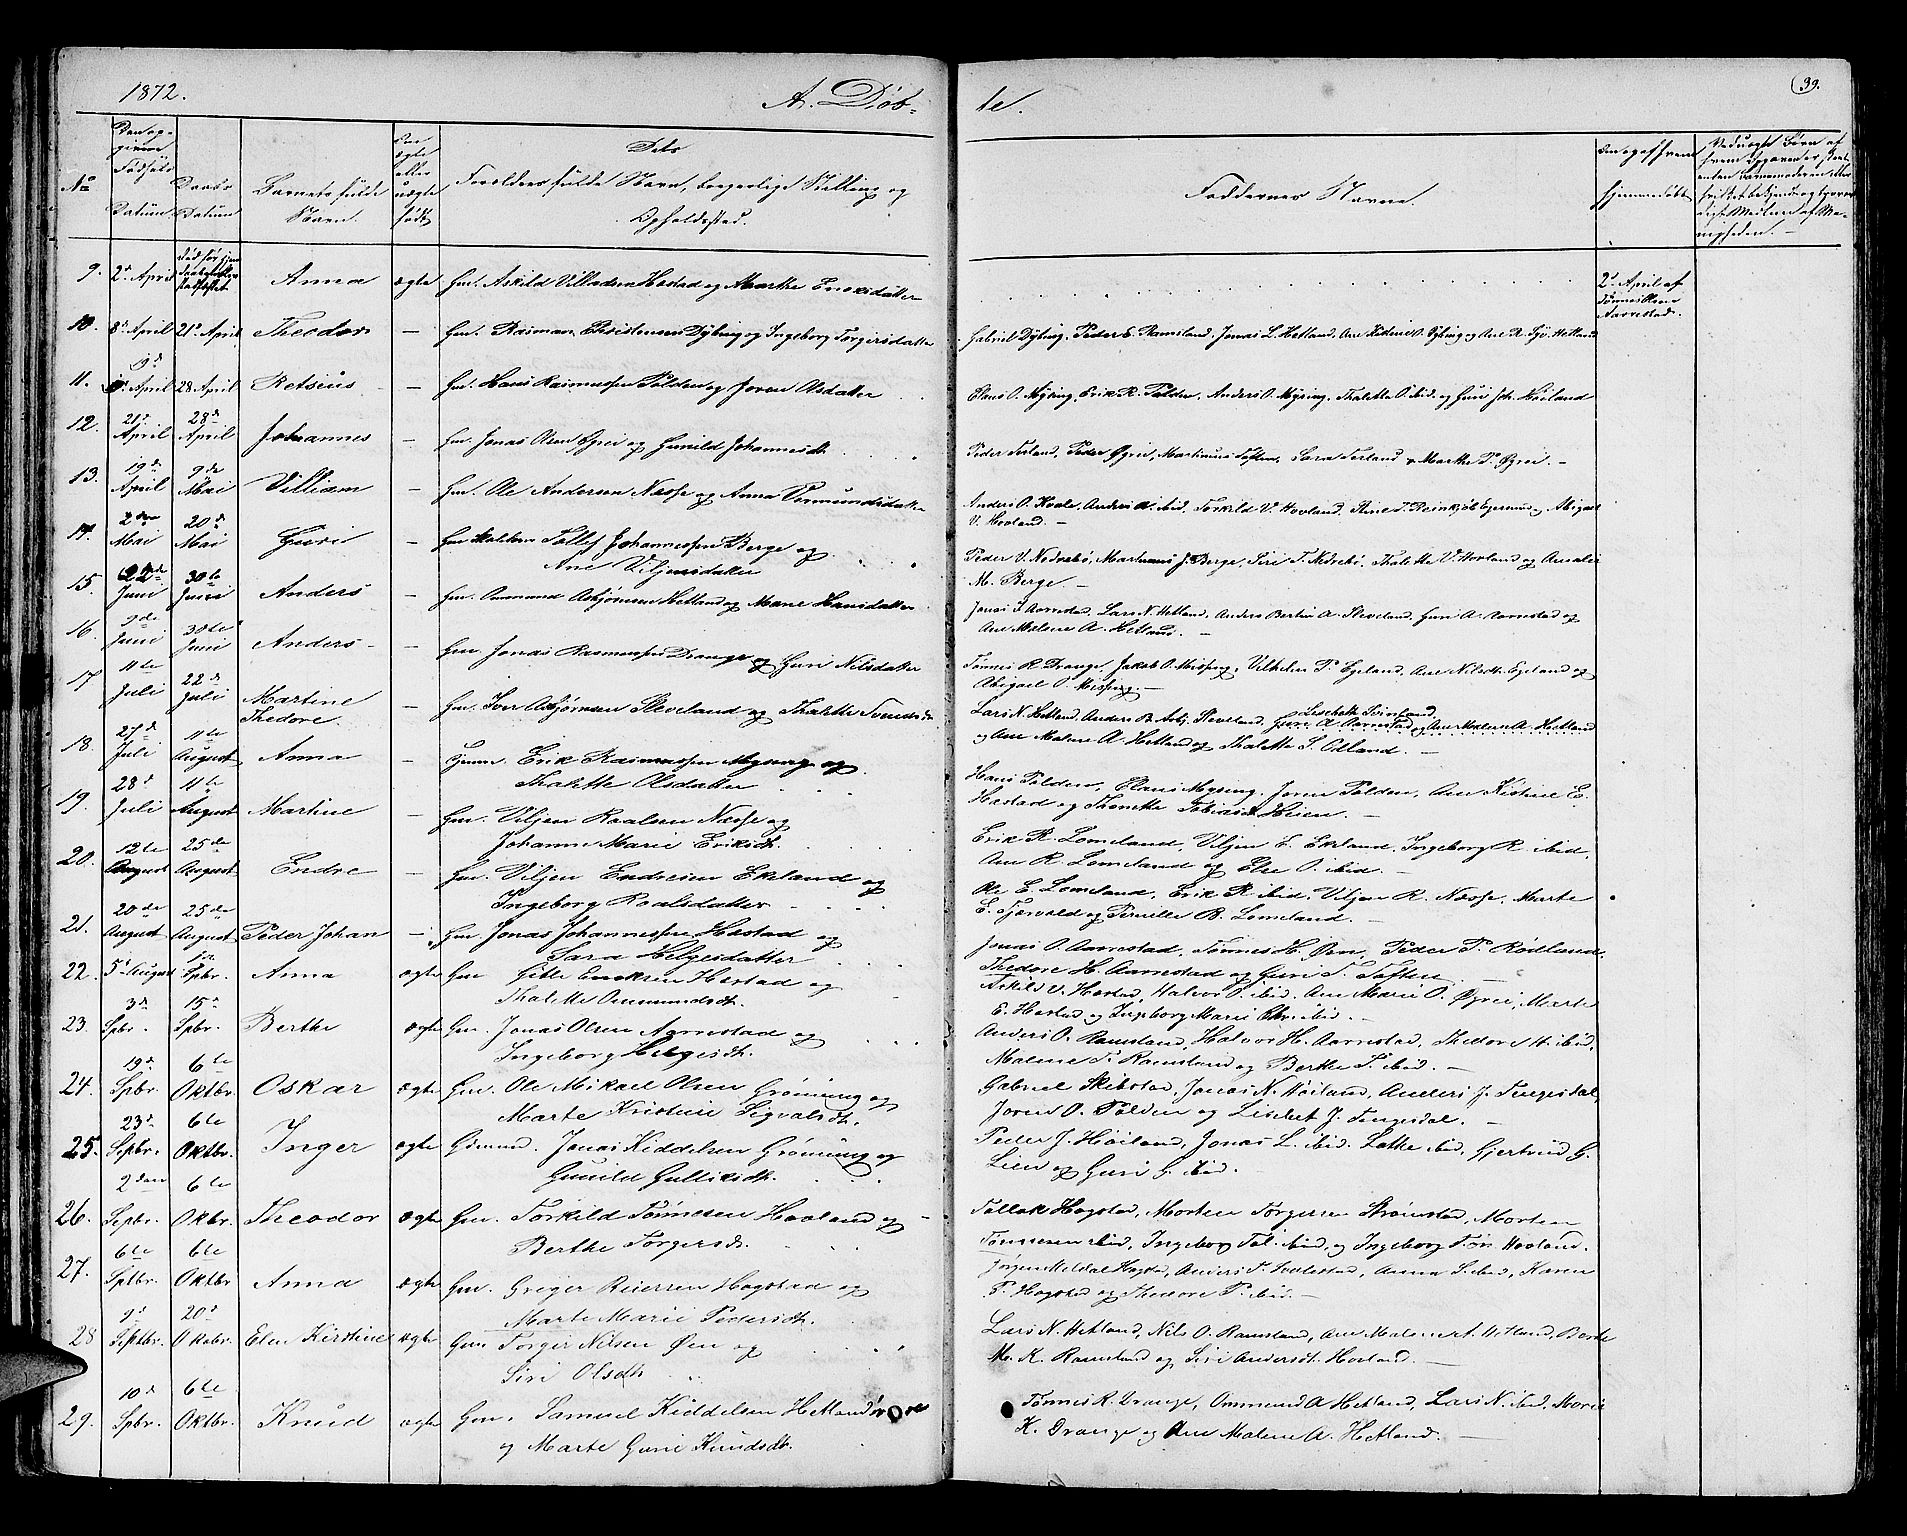 1872. A. Døb-
te. 39.
No
Den opgivne Fødsels Datum.
Daabs Datum
Barnets fulde Navn.
Om ægte eller uægte født
Dets
Forældres fulde Navn, borgerlige Stilling og
Opholdssted.
Faddernes Navne.
9. 2d April Anna ægte Gm. Askild Villadsen Hæstad og Marthe Enoksdatter
2d April af
Aarrestad.
10. 8d April 21d April Theodor — Gm. Rasmus Christensen Dybing og Ingeborg Torgersdatter
Gabriel Dybing, Peder E. Ramsland, Jonas L. Hetland,
11. 9d April 28 April Retsius — Gm. Hans Rasmussen Polden og Joren Olsdatter
Claus O. Mysing, Erik R. Polden, Anders O. Mysing, Thalette O. ibid. og Guri Joh. Høiland
12. 21d April 28d April Johannes — Gm. Jonas Olsen Øgrei og Gunild Johannesdt.
Peder Terland, Peder Øgrei, Martinus Toften, Sara Terland & Marthe P. Øgrei. —
13. 19d April 9de Mai Villiam — Gm. Ole Andersen Næsse og Anna
V. Hovland. —
14. 2den Mai 20d Mai Guri — Gm. Tollef Johannessen Berge og
Ane Viljensdatter
Peder V. Nedrebø, Martinus J. Berge, Siri T. Nedrebø, Thalette V. Hovland og Amalie
M. Berge —
15. Juni 30te Juni Anders — Gm. Ommund Asbjørnsen Hetland og Marie Hansdatter
Jonas J. Aarrestad, Lars N. Hetland, Anders Bertin A. Steveland, Guri A. Aarrestad og
Ane Malene A. Hetland. —
16. 9de Juni 30te Juni Anders — Gm. Jonas Rasmussen Drange og Guri Nilsdatter
Tønnes R. Drange, Jakob O. Missing, Vilhelm P. Egeland, Ane Nilsdt. Egeland og
Abigael O. Missing. —
17 11te Juli 22d Juli Martine
Thedore. — Gm. Iver Asbjørnsen Steveland og Thalette
Lars N. Hetland, Anders B. Asbj. Steveland, Guri A. Aarrestad og Ane Malene A. Hetland
og Ane Malene A. Hetland og Thalette S. Odland. —
18. 27d Juli 11te August Anna — Gmm. Erik Rasmussen Mysing og
Thalette Olsdatter
Hans Polden, Claus Mysing, Joren Polden, Ane Kistine E.
Hæstad og Thonette Tobiasdt. Heien. —
19. 28d Juli 11te August Martine — Gm. Viljen Roalsen Næsse og
Johanne Marie Eriksdt.
Erik R. Lomeland, Viljen E. Ekland, Ingeborg R. ibid,
Ane R. Lomeland og Else O. ibid. —
20. 12te August 25de August Endre — Gm. Viljen Endresen Ekland og
Ingeborg Roalsdatter
Ole E. Lomeland, Erik R. ibid, Viljen R. Næsse, Marte
E. Tjørvold og Pernille B. Lomeland. —
21. 20de August 25de August Peder Johan — Gm. Jonas Johannessen Hæstad og
Sara Helgesdatter
Jonas O. Aarrestad, Tønnes H. Øen, Peder P. Rødland,
Thedore H. Aarrestad og Guri T. Toften —
22. 5d August 1d Spbr. Anna ægte Gm. Gitle Enoksen Hæstad og
Thalette Ommundsdt.
Askild V. Hæstad, Halvor O. ibid, Ane Marie O. Øgrei, Marte
E. Hæstad og Ingeborg Marie Chr. ibid. —
23. 3d Spbr. 15d Spbr. Berthe ægte Gm. Jonas Olsen Aarrestad og
Ingeborg Helgesdt.
Anders O. Ramsland, Halvor H. Aarrestad, Thedore H. ibid,
Malene P. Ramsland og Berthe T. ibid. —
24. 19d Spbr. 6te Oktbr. Oskar ægte Gm. Ole Mikael Olsen Grønning og
Marte Kristine Sigvalsdt.
Gabriel Skibstad, Jonas N. Høiland, Anders J. Tengesdal,
Joren O. Polden og Lisebet J. Tengesdal. —
25. 23d Sepbr. 6te Oktbr. Inger ægte Gdmnd. Jonas Kiddelsen Grønning og
Gunild Gulliksdt.
Peder J. Høiland, Jonas L. ibid. Lathe ibid, Gjertrud G.
Lien og Guri G. ibid.
26. 2den Sepbr. 6te Okbr. Theodor ægte Gm. Torkild Tønnesen Hovland og
Berthe Torgersdt.
Tollak Hogstad, Morten Torgersen Strømstad, Morten
Tønnesen ibid, Ingeborg Tol. ibid, og Ingeborg Tøn. Hovland.
27. 6te Sptbr. 6te Oktbr Anna ægte Gm. Greger Reiersen Hogstad og
Marte Marie Pedersdt.
Jørgen Meldal Hogstad, Anders T. Anna S. ibid, Karen
P. Hogstad og Thedore P. ibid. —
28 9d Septbr. 20d Oktobr. Elen Kirstine ægte Gm. Torger Nilsen Øen og
Siri Olsdt.
Lars N. Hetland, Nils O. Ramsland, Ane Malene A. Hetland, Berte
M. K. Ramsland og Siri Andersdt. Hovland. —
29. 10d Spbr. 6te Oktbr. Knud ægte Gm. Samuel Kiddelsen Hetland
og Marte Gurie Knudsdt.
Tønnes R. Drange, Ommund A Hetland, Lars N. ibid, Marie
K. Drange og Ane Malene A. Hetland. —